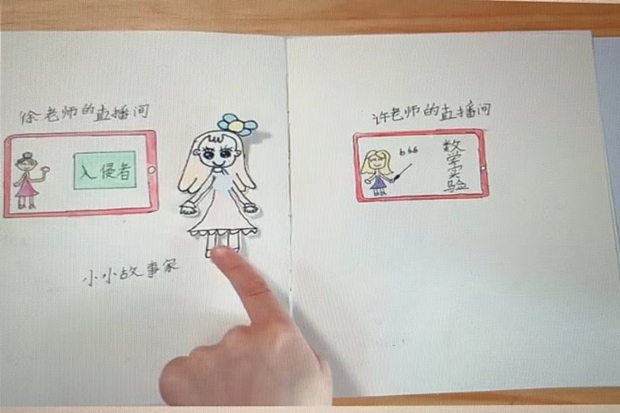 徐老师的直播间
入侵者
小小故事家
许老师的直播间
数学实验